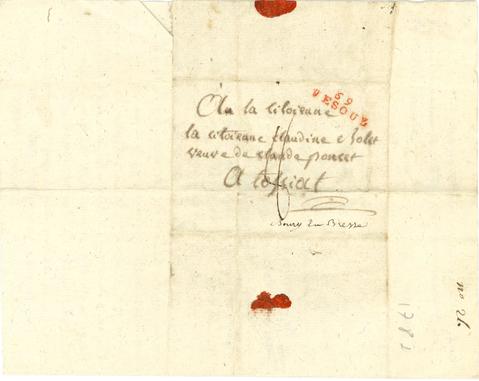 89
VESOUL
A la la citoienne
la citoienne claudine cholet
veuve de claude poncet
A tossiat
6
Bourg En Bresse
no 26
1782